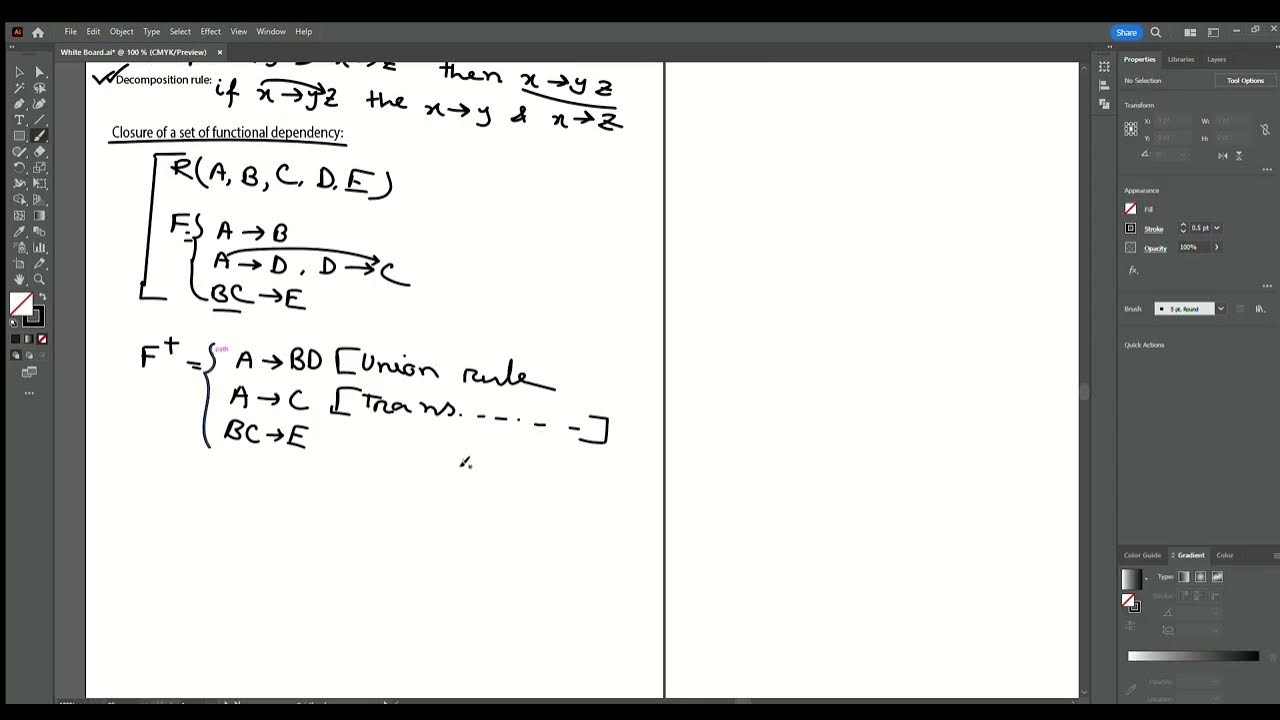 Ai File Edit Object Type Select Effect View Window Help Share
White Board.ai* @ 100 % (CMYK/Preview) ×
then x→yz
✓Decomposition rule: if x→yz the x→y & x→z
Closure of a set of functional dependency:
R(A, B, C, D, E)
F { A → B
A → D , D → C
BC → E
F+ = { A → BD [Union rule
path
A → C [Trans. - - . - - ]
BC → E
Properties Libraries Layers
No Selection Tool Options
Transform
X: W:
Y: H:
Appearance
Fill
Stroke 0.5 pt
Opacity 100%
fx.
Brush 5 pt. Round
Quick Actions
Color Guide Gradient Color
Type:
Stroke:
Opacity:
Location: